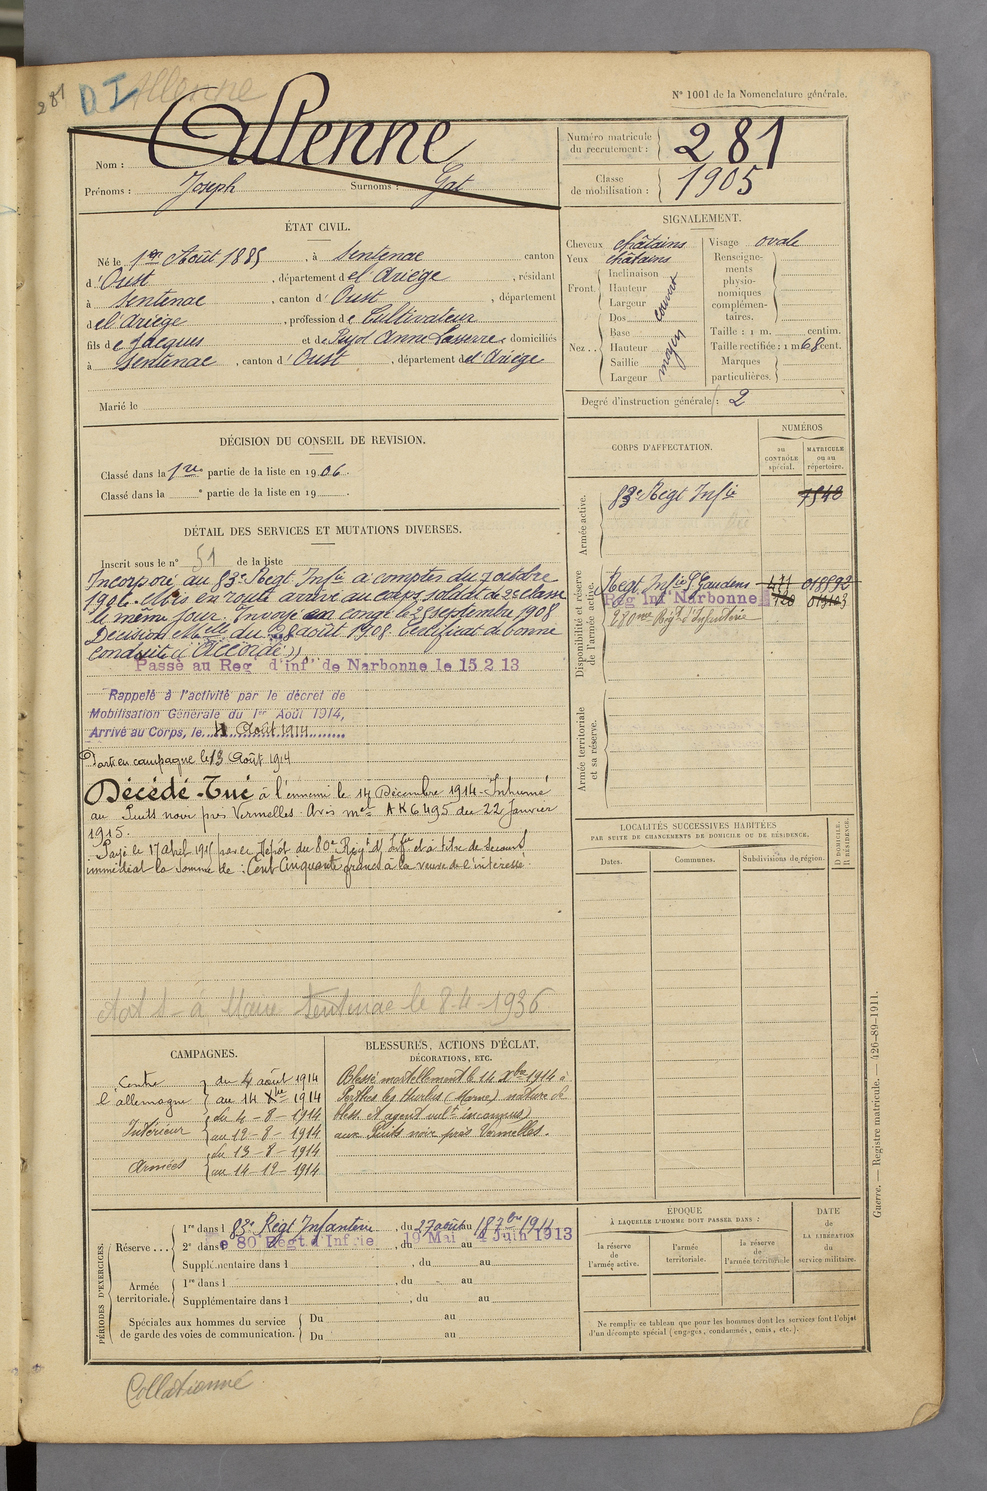 281 D I Allenne
N° 1001 de la Nomenclature générale.
Nom : Allenne
Prénoms : Joseph Surnoms : Gat
Numéro matricule du recrutement : 281
Classe de mobilisation : 1905
ÉTAT CIVIL.
Né le 1er Août 1885, à Sentenac canton
d'Oust, département de l'Ariège, résidant
à Sentenac, canton d'Oust, département
de l'Ariège, profession de Cultivateur
fils de Jacques et de Pujol Anne Lasserre domiciliés
à Sentenac, canton d'Oust, département de l'Ariège
Marié le
SIGNALEMENT.
Cheveux châtains
Yeux châtains
Front. Inclinaison
Hauteur
Largeur
couvert
Nez .. Dos
Base
Hauteur
Saillie
Largeur
moyen
Visage ovale
Renseignements physionomiques complémentaires.
Taille : 1 m. centim.
Taille rectifiée : 1 m 68 cent.
Marques particulières.
Degré d'instruction générale : 2
DÉCISION DU CONSEIL DE REVISION.
Classé dans la 1re partie de la liste en 1906.
Classé dans la e partie de la liste en 19
DÉTAIL DES SERVICES ET MUTATIONS DIVERSES.
Inscrit sous le n° 51 de la liste
Incorporé au 83e Régt Infie à compter du 7 octobre
1906. Mis en route arrivé au corps soldat de 2e classe
le même jour. Envoyé en congé le 28 septembre 1908
Décision Melle du 8 août 1908. Certificat de bonne
conduite « Accordé ».
Passé au Reg' d'inf'' de Narbonne le 15 2 13
Rappelé à l'activité par le décret de
Mobilisation Générale du 1er Août 1914,
Arrivé au Corps, le 4 Août 1914
Parti en campagne le 13 Août 1914
Décédé - Tué à l'ennemi le 14 Décembre 1914 - Inhumé
au Puits noir près Vermelles. Avis mel AK 6495 du 22 Janvier
1915.
Payé le 17 avril 1915 par le Dépôt du 80e Régt d'Infie et à titre de secours
immédiat la somme de : Cent Cinquante francs à la veuve de l'intéressé
à Mairie Sentenac le 8-4-1936
CORPS D'AFFECTATION.
NUMÉROS
au CONTRÔLE spécial.
MATRICULE ou au répertoire.
Armée active.
83e Régt Infie 7540
Disponibilité et réserve de l'armée active.
Regt Infie St Gaudens 471 018892
Reg Inf Narbonne 720
280me Régt d'Infanterie
Armée territoriale et sa réserve.
LOCALITÉS SUCCESSIVES HABITÉES
PAR SUITE DE CHANGEMENTS DE DOMICILE OU DE RÉSIDENCE.
Dates. Communes. Subdivisions de région. D. DOMICILE. R. RÉSIDENCE.
CAMPAGNES.
Contre l'allemagne du 4 août 1914
au 14 Xbre 1914
Intérieur du 4-8-1914
au 12-8-1914
Armées du 13-8-1914
au 14-12-1914
BLESSURES, ACTIONS D'ÉCLAT,
DÉCORATIONS, ETC.
Blessé mortellement le 14 Xbre 1914 à
Perthes les Hurlus (Marne) nature de
bless. et agent vult inconnus)
aux Puits noir près Vermelles.
PÉRIODES D'EXERCICES.
Réserve ... 1re dans l 83e Régt Infanterie, du 27 août au 18 7bre 1911
2e dans le 80 Regt d Inf rie, du 19 Mai au 4 Juin 1913
Supplémentaire dans l , du au
Armée territoriale. 1re dans l , du au
Supplémentaire dans l , du au
Spéciales aux hommes du service de garde des voies de communication. Du au
Du au
ÉPOQUE
À LAQUELLE L'HOMME DOIT PASSER DANS :
la réserve de l'armée active.
l'armée territoriale.
la réserve de l'armée territoriale
DATE de LA LIBÉRATION du service militaire.
Ne remplir ce tableau que pour les hommes dont les services font l'objet
d'un décompte spécial (engagés, condamnés, omis, etc.).
Guerre. — Registre matricule. — 426-89-1911.
Collationné